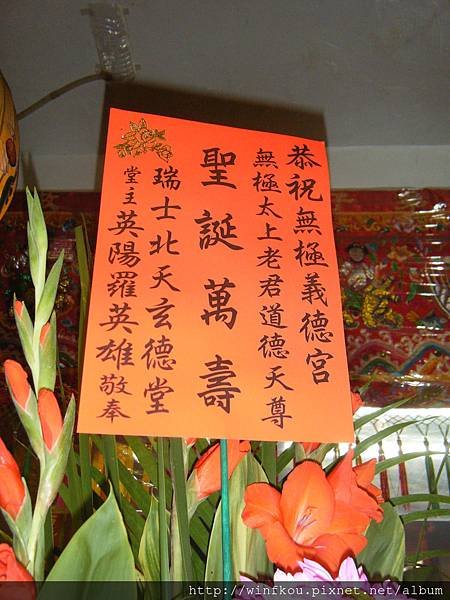 恭祝無極義德宮
無極太上老君道德天尊
聖誕萬壽
瑞士北天玄德堂
堂主英陽羅英雄敬奉
http://winfkou.pixnet.net/album